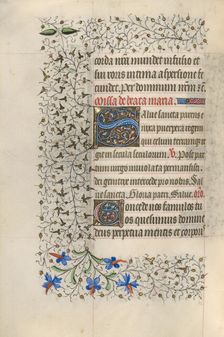 corda nr̄a mundet infusio et
sui roris intima aspersione fe
cundet. per dominum
Missa de beata maria.
Salue sancta parens e
nixa puerpera regem qui
celum terramque regit
in secula seculorum. V. Post par
tum uirgo inuiolata permansisti.
dei genitrix intercede pro nobis. Sal
ue sancta. Gloria patri. Salue. or̄o.
Concede nos famulos tu
os quesumus domine
deus perpetua mentis et corpori